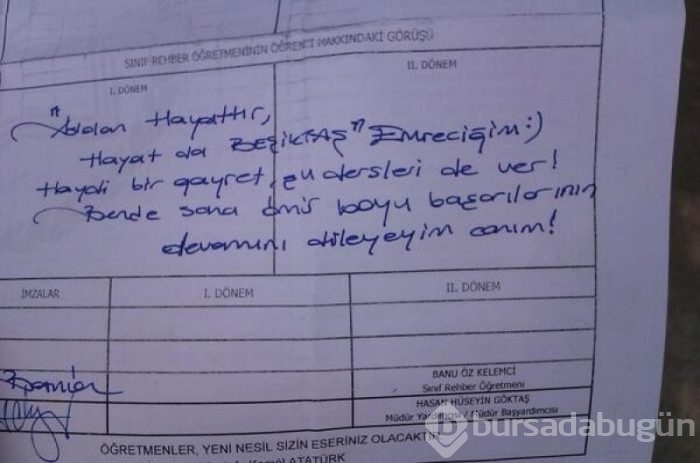 SINIF REHBER ÖĞRETMENİNİN ÖĞRENCİ HAKKINDAKİ GÖRÜŞÜ
I. DÖNEM
II. DÖNEM
Hayattır,
Hayat da BEŞİKTAŞ" Emreciğim:)
Haydi bir gayret, şu dersleri de ver!
Bende sana ömür boyu başarılarının
devamını dileyeyim canım!
İMZALAR
I. DÖNEM
II. DÖNEM
BANU ÖZ KELEMCİ
Sınıf Rehber Öğretmeni
HASAN HÜSEYİN GÖKTAŞ
Müdür Yardımcısı / Müdür Başyardımcısı
ÖĞRETMENLER, YENİ NESİL SİZİN ESERİNİZ OLACAKTIR
Kemâl ATATÜRK
bursadabugün